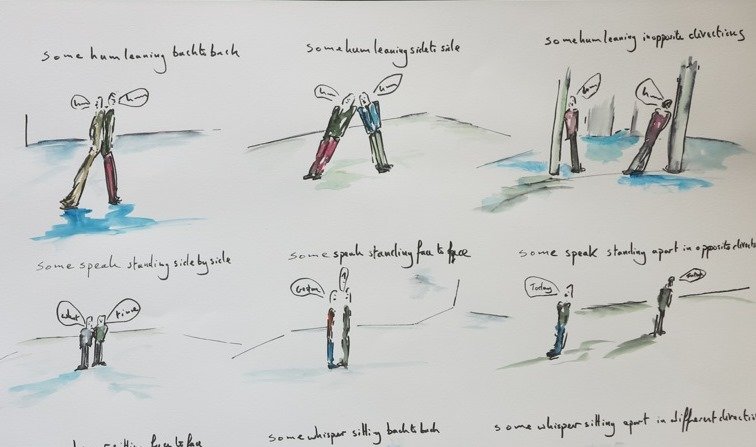 some hum leaning back to back
some hum leaning side to side
some hum leaning in opposite directions
hm
hm
hm
hm
hm
some speak standing side by side
some speak standing face to face
some speak standing apart in opposite
what
time
Today
sitting face to face
some whisper sitting back to back
some whisper sitting apart in different